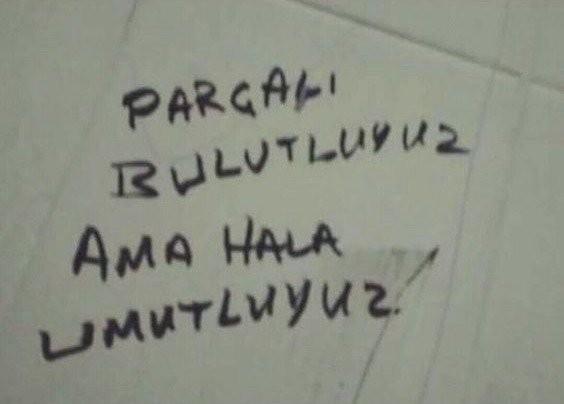 PARÇALI
BULUTLUYUZ
AMA HALA
UMUTLUYUZ.